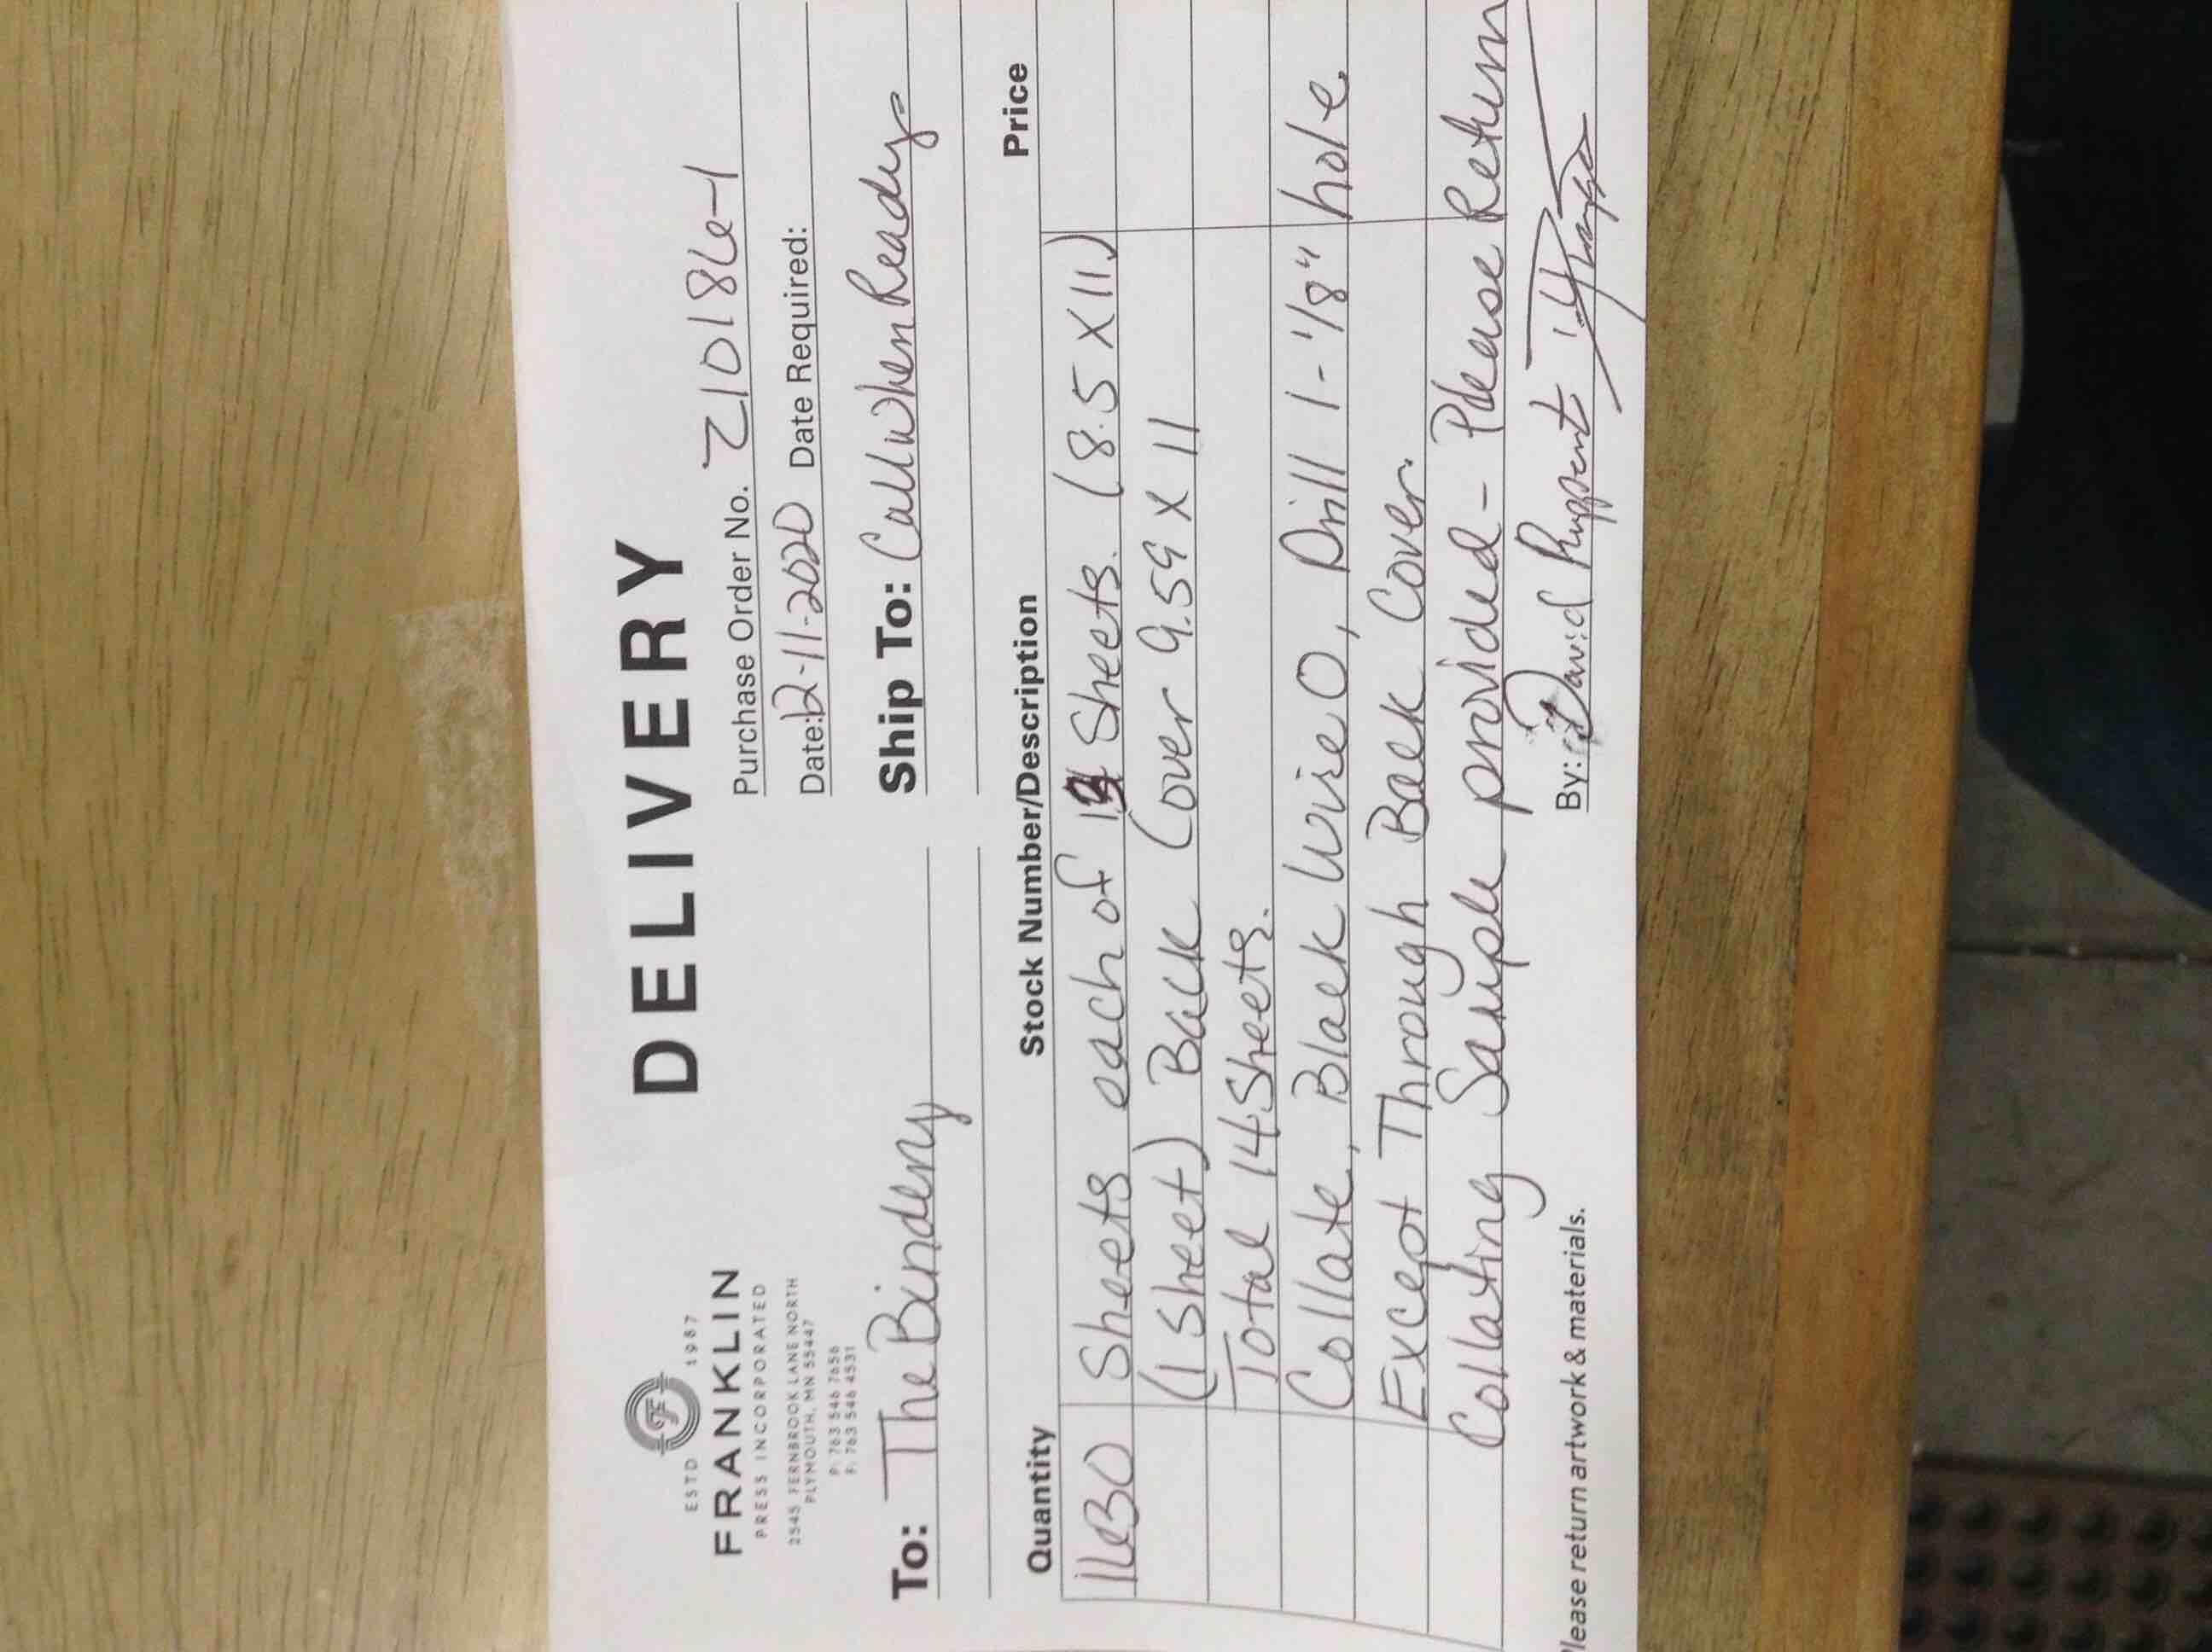 ESTD 1987
FRANKLIN
PRESS INCORPORATED
2545 FERNBROOK LANE NORTH
PLYMOUTH, MN 55447
P: 763 546 7656
F: 763 546 4531
DELIVERY
Purchase Order No. Z10186-1
Date: 12-11-2020 Date Required:
To: The Bindery
Ship To: Call when Ready
Quantity Stock Number/Description Price
1630 Sheets each of Sheets. (8.5 X 11)
(1 Sheet) Back Cover 9.59 X 11
Total 14 Sheets.
Collate, Black Wire O, Drill 1-1/8" hole
Except Through Back Cover.
Collating Sample provided - Please Return
Please return artwork & materials.
By: David